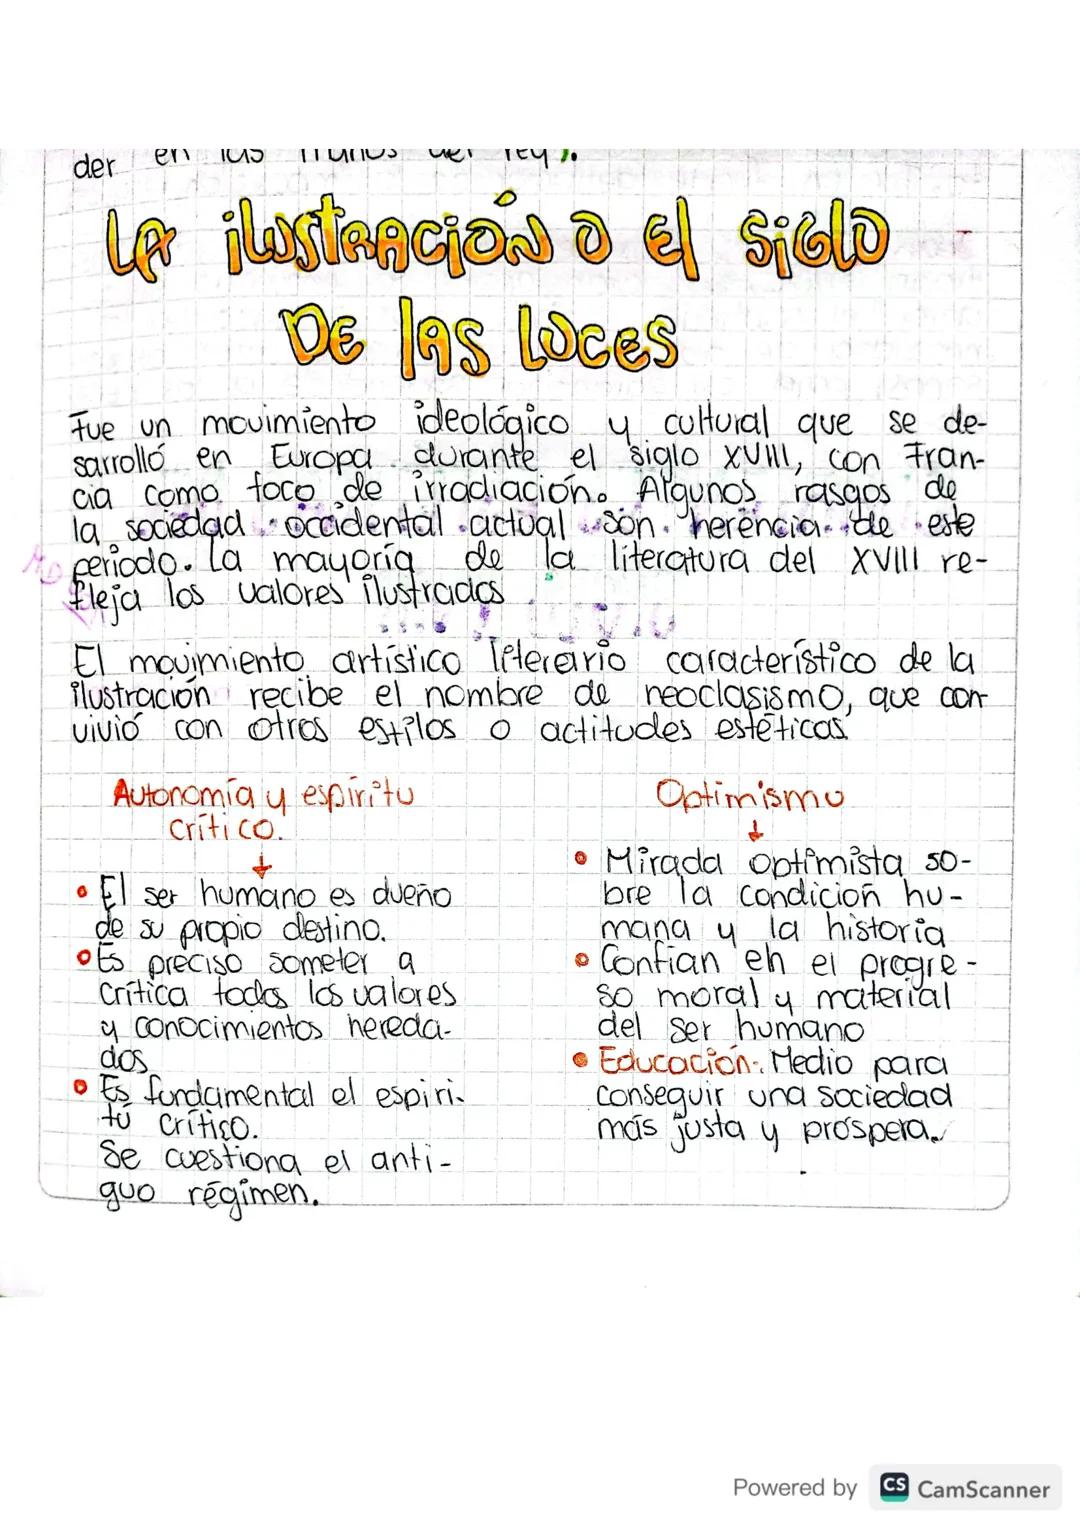 der en las manos del rey).
LA ilUSTRACIÓN O El SiGlO
DE lAS LUCES
Fue un movimiento ideológico y cultural que se de-
sarrolló en Europa durante el siglo XVIII, con Fran-
cia como foco de irradiación. Algunos rasgos de
la sociedad occidental actual son herencia de este
periodo. La mayoría de la literatura del XVIII re-
fleja los valores ilustrados
El movimiento artístico característico de la
ilustración recibe el nombre de neoclasismo, que con
vivió con otros estilos o actitudes estéticas.
Autonomía y espíritu
crítico.
• El ser humano es dueño
de su propio destino.
• Es preciso someter a
crítica todos los valores
y conocimientos hereda-
dos
• Es fundamental el espiri-
tu crítico.
Se cuestiona el anti-
guo régimen.
Optimismo
• Mirada optimista so-
bre la condición hu-
mana y la historia
• Confian en el progre-
so moral y material
del ser humano
• Educación: Medio para
conseguir una sociedad
más justa y próspera.
Powered by CS CamScanner